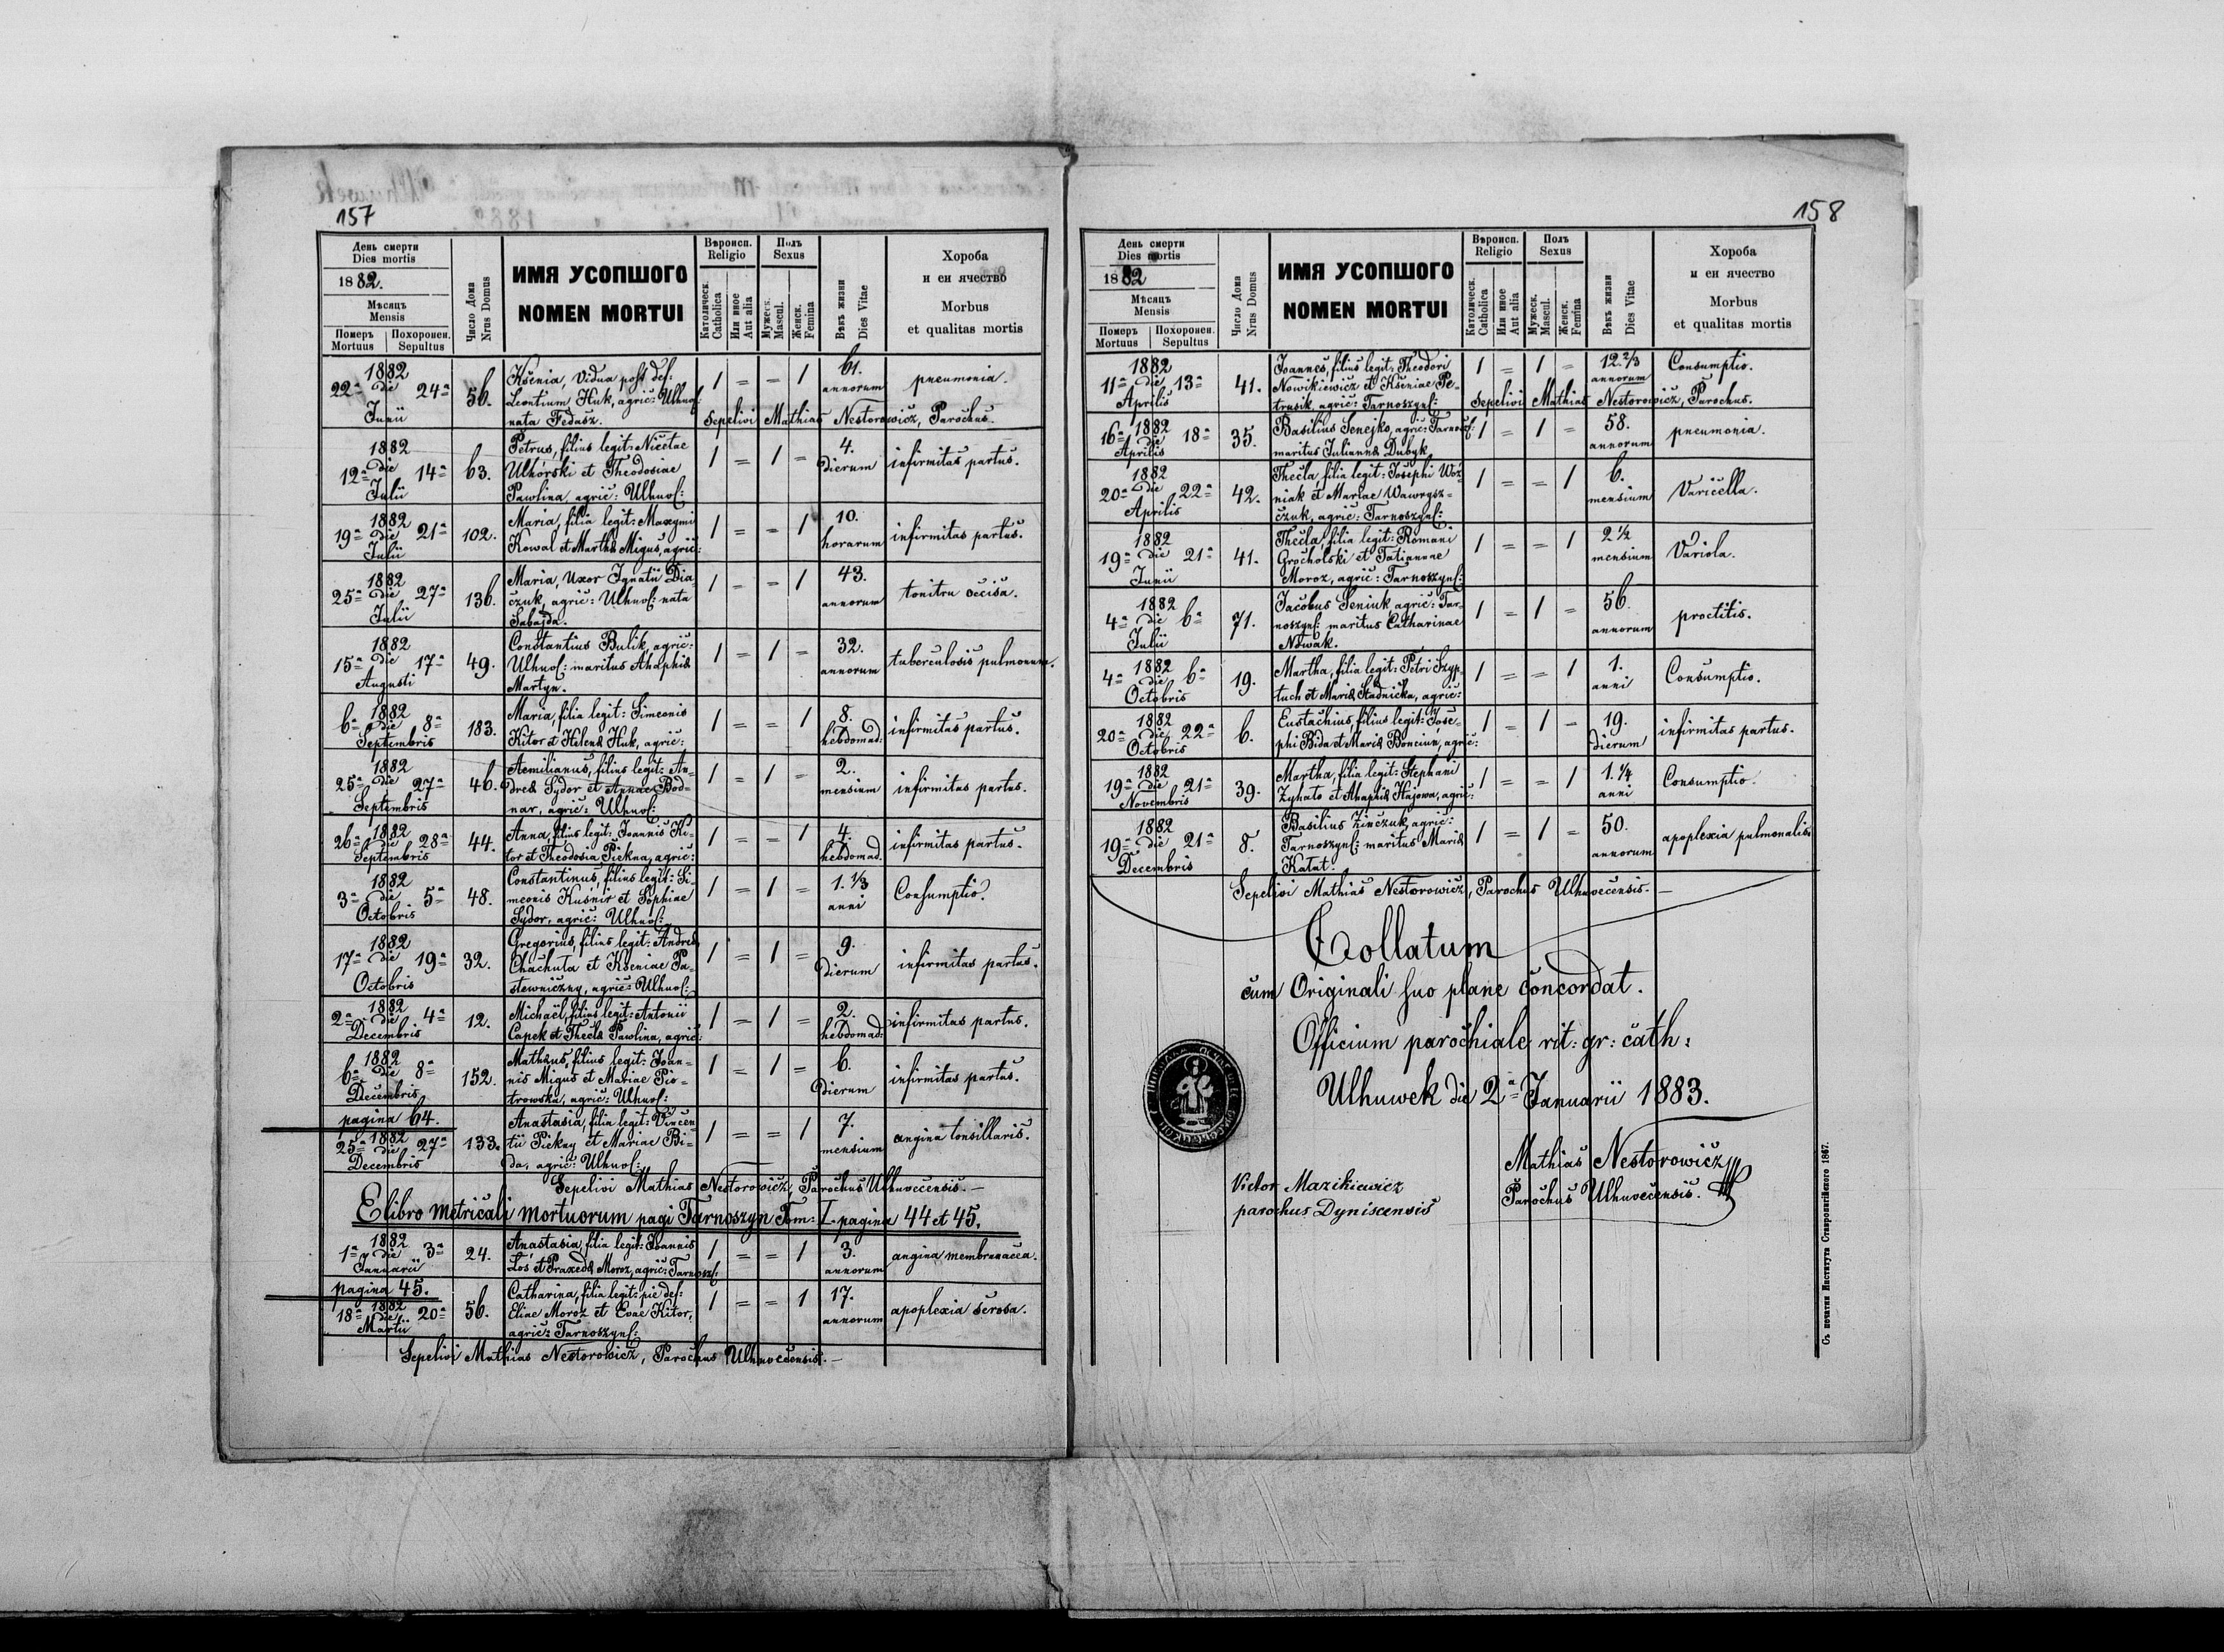 157
День смерти
Dies mortis
1882.
Мѣсяцъ
Mensis
Померъ
Mortuus
Похоронен.
Sepultus
Число Дома
Nrus Domus
ИМЯ УСОПШОГО
NOMEN MORTUI
Вѣроисп.
Religio
Католическ.
Catholica
Или иное
Aut alia
Полъ
Sexus
Мужеск.
Mascul.
Женск.
Femina
Вѣкъ жизни
Dies Vitae
Хороба
и еи ячество
Morbus
et qualitas mortis
1882
22ª die 24ª
Junii
56.
Ksenia, Vidua post def:
Leontium Huk, agric: Ulhuv:
nata Fedasz.
1 = = 1
61.
annorum
pneumonia.
Sepelivi Mathias Nestorowicz, Parochus.
1882
12ª die 14ª
Julii
63.
Petrus, filius legit: Nicetae
Ulhórski et Theodosiae
Pawlina, agric: Ulhuv:
1 = 1 =
4.
dierum
infirmitas partus.
1882
19ª die 21ª
Julii
102.
Maria, filia legit: Maxymi
Kowal et Marthæ Migus, agric:
1 = = 1
10.
horarum
infirmitas partus.
1882
25ª die 27ª
Julii
136.
Maria, Uxor Ignatii Dia-
czuk, agric: Ulhuv: nata
Sabajda.
1 = = 1
43.
annorum
tonitru occisa.
1882
15ª die 17ª
Augusti
49.
Constantius Bulik, agric:
Ulhuv: maritus Ahaphiæ
Martyn.
1 = 1 =
32.
annorum
tuberculosis pulmonum.
1882
6ª die 8ª
Septembris
183.
Maria, filia legit: Simeonis
Kitor et Helenæ Huk, agric:
1 = = 1
8.
hebdomad:
infirmitas partus.
1882
25ª die 27ª
Septembris
46.
Aemilianus, filius legit: An-
dreæ Sydor et Annae Bod-
nar, agric: Ulhuv:
1 = 1 =
2.
mensium
infirmitas partus.
1882
26ª die 28ª
Septembris
44.
Anna, filius legit: Joannis Ki-
tor et Theodosia Piekna, agric:
1 = = 1
4.
hebdomad.
infirmitas partus.
1882
3ª die 5ª
Octobris
48.
Constantinus, filius legit: Si-
meonis Kuśnir et Sophiae
Sydor, agric: Ulhuv:
1 = 1 =
1. 1/3
anni
Consumptio.
1882
17ª die 19ª
Octobris
32.
Gregorius, filius legit: Andreæ
Chachuła et Kseniae Pa-
stewniczny, agric: Ulhuv:
1 = 1 =
9.
dierum
infirmitas partus.
1882
2ª die 4ª
Decembris
12.
Michaël, filius legit: Antonii
Capek et Theclæ Pawlina, agric:
1 = 1 =
2.
hebdomad:
infirmitas partus.
1882
6ª die 8ª
Decembris
152.
Mathæus, filius legit: Joan-
nis Migus et Mariae Pio-
trowska, agric: Ulhuv:
1 = 1 =
6.
dierum
infirmitas partus.
pagina 64.
1882
25ª die 27ª
Decembris
133.
Anastasia, filia legit: Vincen-
tii Piekny et Mariae Bi-
da, agric: Ulhuv:
1 = = 1
7.
mensium
angina tonsillaris.
Sepelivi Mathias Nestorowicz, Parochus Ulhuvecensis.—
E libro metricali mortuorum pagi Tarnoszyn Tom: I. pagina 44 et 45.
1882
1ª die 3ª
Januarii
24.
Anastasia, filia legit: Joannis
Łoś et Praxedæ Moroz, agric: Tarnosz:
1 = = 1
3.
annorum
angina membranacea.
pagina 45.
1882
18ª die 20ª
Martii
56.
Catharina, filia legit: pie def:
Eliae Moroz et Evae Kitor,
agric: Tarnoszyn:
1 = = 1
17.
annorum
apoplexia serosa.
Sepelivi Mathias Nestorowicz, Parochus Ulhuvecensis.—
158
День смерти
Dies mortis
1882
Мѣсяцъ
Mensis
Померъ
Mortuus
Похоронен.
Sepultus
Число Дома
Nrus Domus
ИМЯ УСОПШОГО
NOMEN MORTUI
Вѣроисп.
Religio
Католическ.
Catholica
Или иное
Aut alia
Полъ
Sexus
Мужеск.
Mascul.
Женск.
Femina
Вѣкъ жизни
Dies Vitae
Хороба
и еи ячество
Morbus
et qualitas mortis
1882
11ª die 13ª
Aprilis
41.
Joannes, filius legit: Theodori
Nowikiewicz et Kseniae Pe-
trusik, agric: Tarnoszyn:
1 = 1 =
12 2/3
annorum
Consumptio.
Sepelivi Mathias Nestorowicz, Parochus.
1882
16ª die 18ª
Aprilis
35.
Basilius Senejko, agric: Tarnosz:
maritus Juliannæ Dubyk
1 = 1 =
58.
annorum
pneumonia.
1882
20ª die 22ª
Aprilis
42.
Thecla filia legit: Josephi Woź-
niak et Mariae Wawrysz-
czuk, agric: Tarnoszyn:
1 = = 1
6.
mensium
Varicella.
1882
19ª die 21ª
Junii
41.
Thecla, filia legit: Romani
Grocholski et Tatiannae
Moroz, agric: Tarnoszyn:
1 = = 1
2 1/2
mensium
Variola.
1882
4ª die 6ª
Julii
71.
Jacobus Seniuk, agric: Tar-
noszyn: maritus Catharinae
Nowak.
1 = 1 =
56.
annorum
proctitis.
1882
4ª die 6ª
Octobris
19.
Martha, filia legit: Petri Szyp-
tuch et Mariæ Stadnicka, agric:
1 = = 1
1.
anni
Consumptio.
1882
20ª die 22ª
Octobris
6.
Eustachius, filius legit: Jose-
phi Bida et Mariæ Bonciun, agric:
1 = 1 =
19.
dierum
infirmitas partus.
1882
19ª die 21ª
Novembris
39.
Martha, filia legit: Stephani
Zyhało et Ahaphiæ Hajowa, agric:
1 = = 1
1. 1/4
anni
Consumptio.
1882
19ª die 21ª
Decembris
8.
Basilius Zinczuk, agric:
Tarnoszyn: maritus Mariæ
Kałat.
1 = 1 =
50.
annorum
apoplexia pulmonalis
Sepelivi Mathias Nestorowicz, Parochus Ulhuvecensis.—
Collatum
cum Originali suo plane concordat.
Officium parochiale rit: gr: cath:
Ulhuwek die 2ª Januarii 1883.
Mathias Nestorowicz
Parochus Ulhuvecensis.
Victor Mazikiewicz
parochus Dyniscensis
Съ печатни Института Ставропигійского 1867.